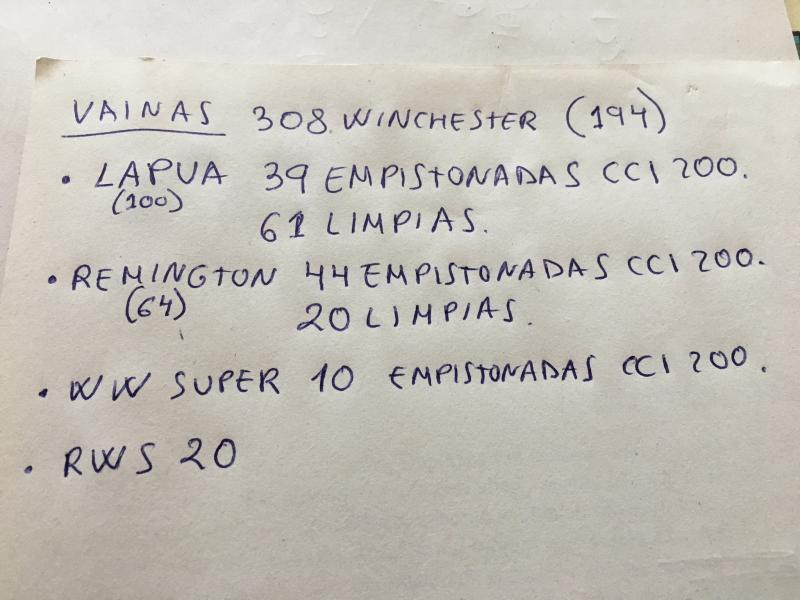 VAINAS 308 WINCHESTER (194)
• LAPUA 39 EMPISTONADAS CCI 200.
(100)
61 LIMPIAS.
• REMINGTON 44 EMPISTONADAS CCI 200.
(64)
20 LIMPIAS.
• WW SUPER 10 EMPISTONADAS CCI 200.
• RWS 20